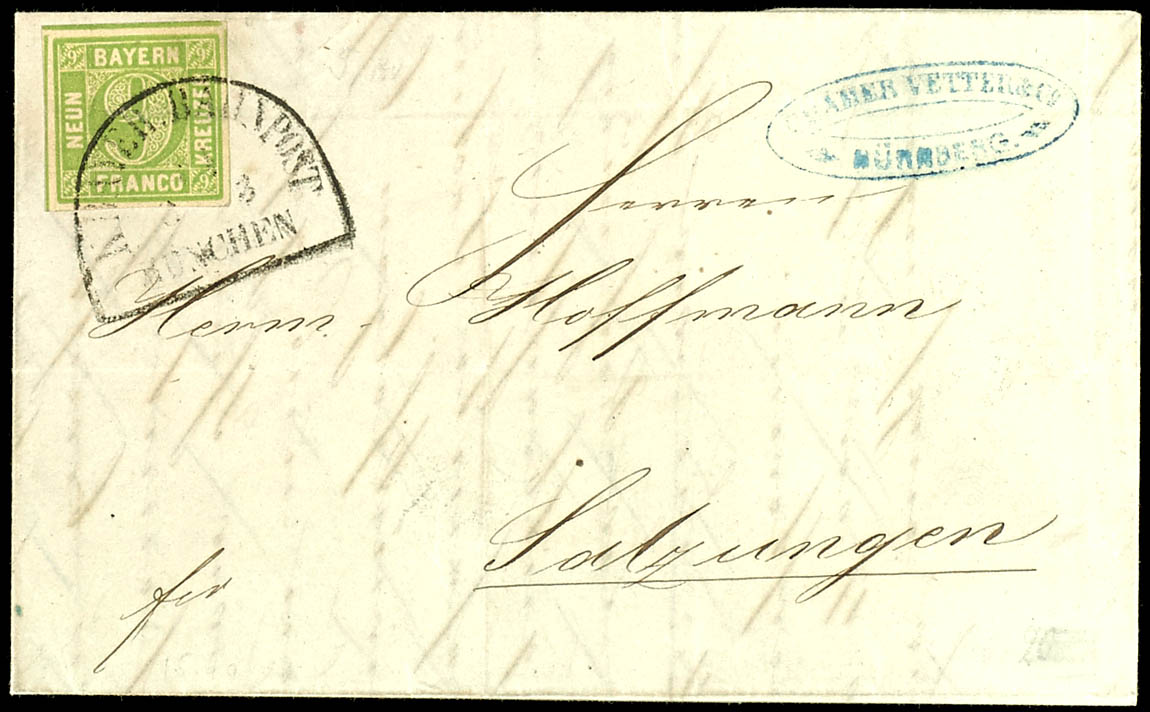 9 BAYERN 9
NEUN 9 KREUZER
9 FRANCO 9
BAHNPOST
3
MÜNCHEN
KRAMER VETTER & Co
NÜRNBERG.
Herren
Hoffmann
Salzungen
fco
20